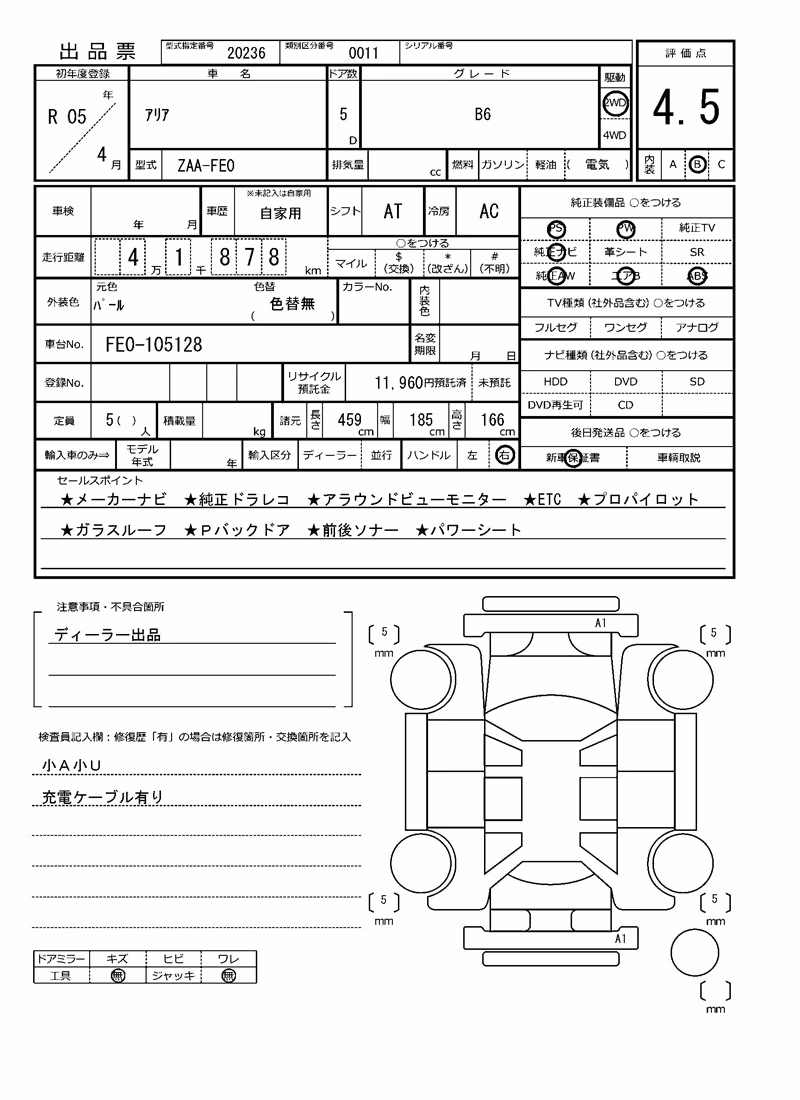 出品票 型式指定番号 20236 類別区分番号 0011 シリアル番号
評価点
初年度登録 車名 ドア数 グレード 駆動
年
R 05 アリア 5 B6 2WD 4.5
4WD
4月 D
型式 ZAA-FE0 排気量 cc 燃料 ガソリン 軽油 ( 電気 ) 内装 A B C
車検 年 月 車歴 ※未記入は自家用 自家用 シフト AT 冷房 AC
純正装備品 ○をつける
PS PW 純正TV
純正ナビ 革シート SR
純正AW エアB ABS
走行距離 4万 1千 878 km
○をつける
マイル $(交換) *(改ざん) #(不明)
外装色 元色 パール 色替 ( 色替無 ) カラーNo. 内装色
TV種類(社外品含む)○をつける
フルセグ ワンセグ アナログ
車台No. FE0-105128 名変期限 月 日
ナビ種類(社外品含む)○をつける
HDD DVD SD
DVD再生可 CD
登録No. リサイクル預託金 11,960円預託済 未預託
定員 5( )人 積載量 kg 諸元 長さ 459cm 幅 185cm 高さ 166cm
後日発送品 ○をつける
新車保証書 車輌取説
輸入車のみ⇒ モデル年式 年 輸入区分 ディーラー 並行 ハンドル 左 右
セールスポイント
★メーカーナビ ★純正ドラレコ ★アラウンドビューモニター ★ETC ★プロパイロット
★ガラスルーフ ★Pバックドア ★前後ソナー ★パワーシート
注意事項・不具合箇所
ディーラー出品
検査員記入欄:修復歴「有」の場合は修復箇所・交換箇所を記入
小A小U
充電ケーブル有り
ドアミラー キズ ヒビ ワレ
工具 無 ジャッキ 無
A1
5 mm
5 mm
5 mm
5 mm
A1
mm